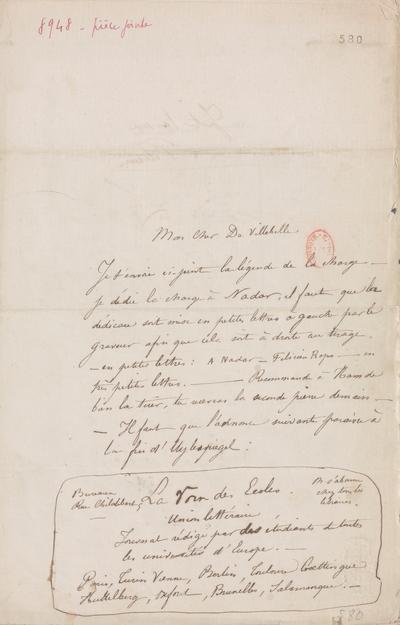 8948 - pièce jointe
580
Mon Cher De Villebille
Je t'envoie ci-joint la légende de la charge. —
je dédie la charge à Nadar, il faut que la
dédicace soit mise en petites lettres à gauche par le
graveur afin que cela soit à droite au tirage.
— en petites lettres : A Nadar — Félicien Rops — en
très petites lettres. — Recommande à Ham de
bien la tirer, tu verras la seconde pierre demain —
— Il faut que l'adresse suivant paraisse à
la fin d'Uylespiegel :
Bureaux
Rue Childebert, La Voix des Ecoles. On s'abonne
chez tous les
libraires.
Union littéraire
Journal rédigé par des étudiants de toutes
les universités d'Europe. —
Paris, Turin Vienne, Berlin, Toulouse Goettingue
Heidelberg, Oxford, Bruxelles, Salamanque. —
580